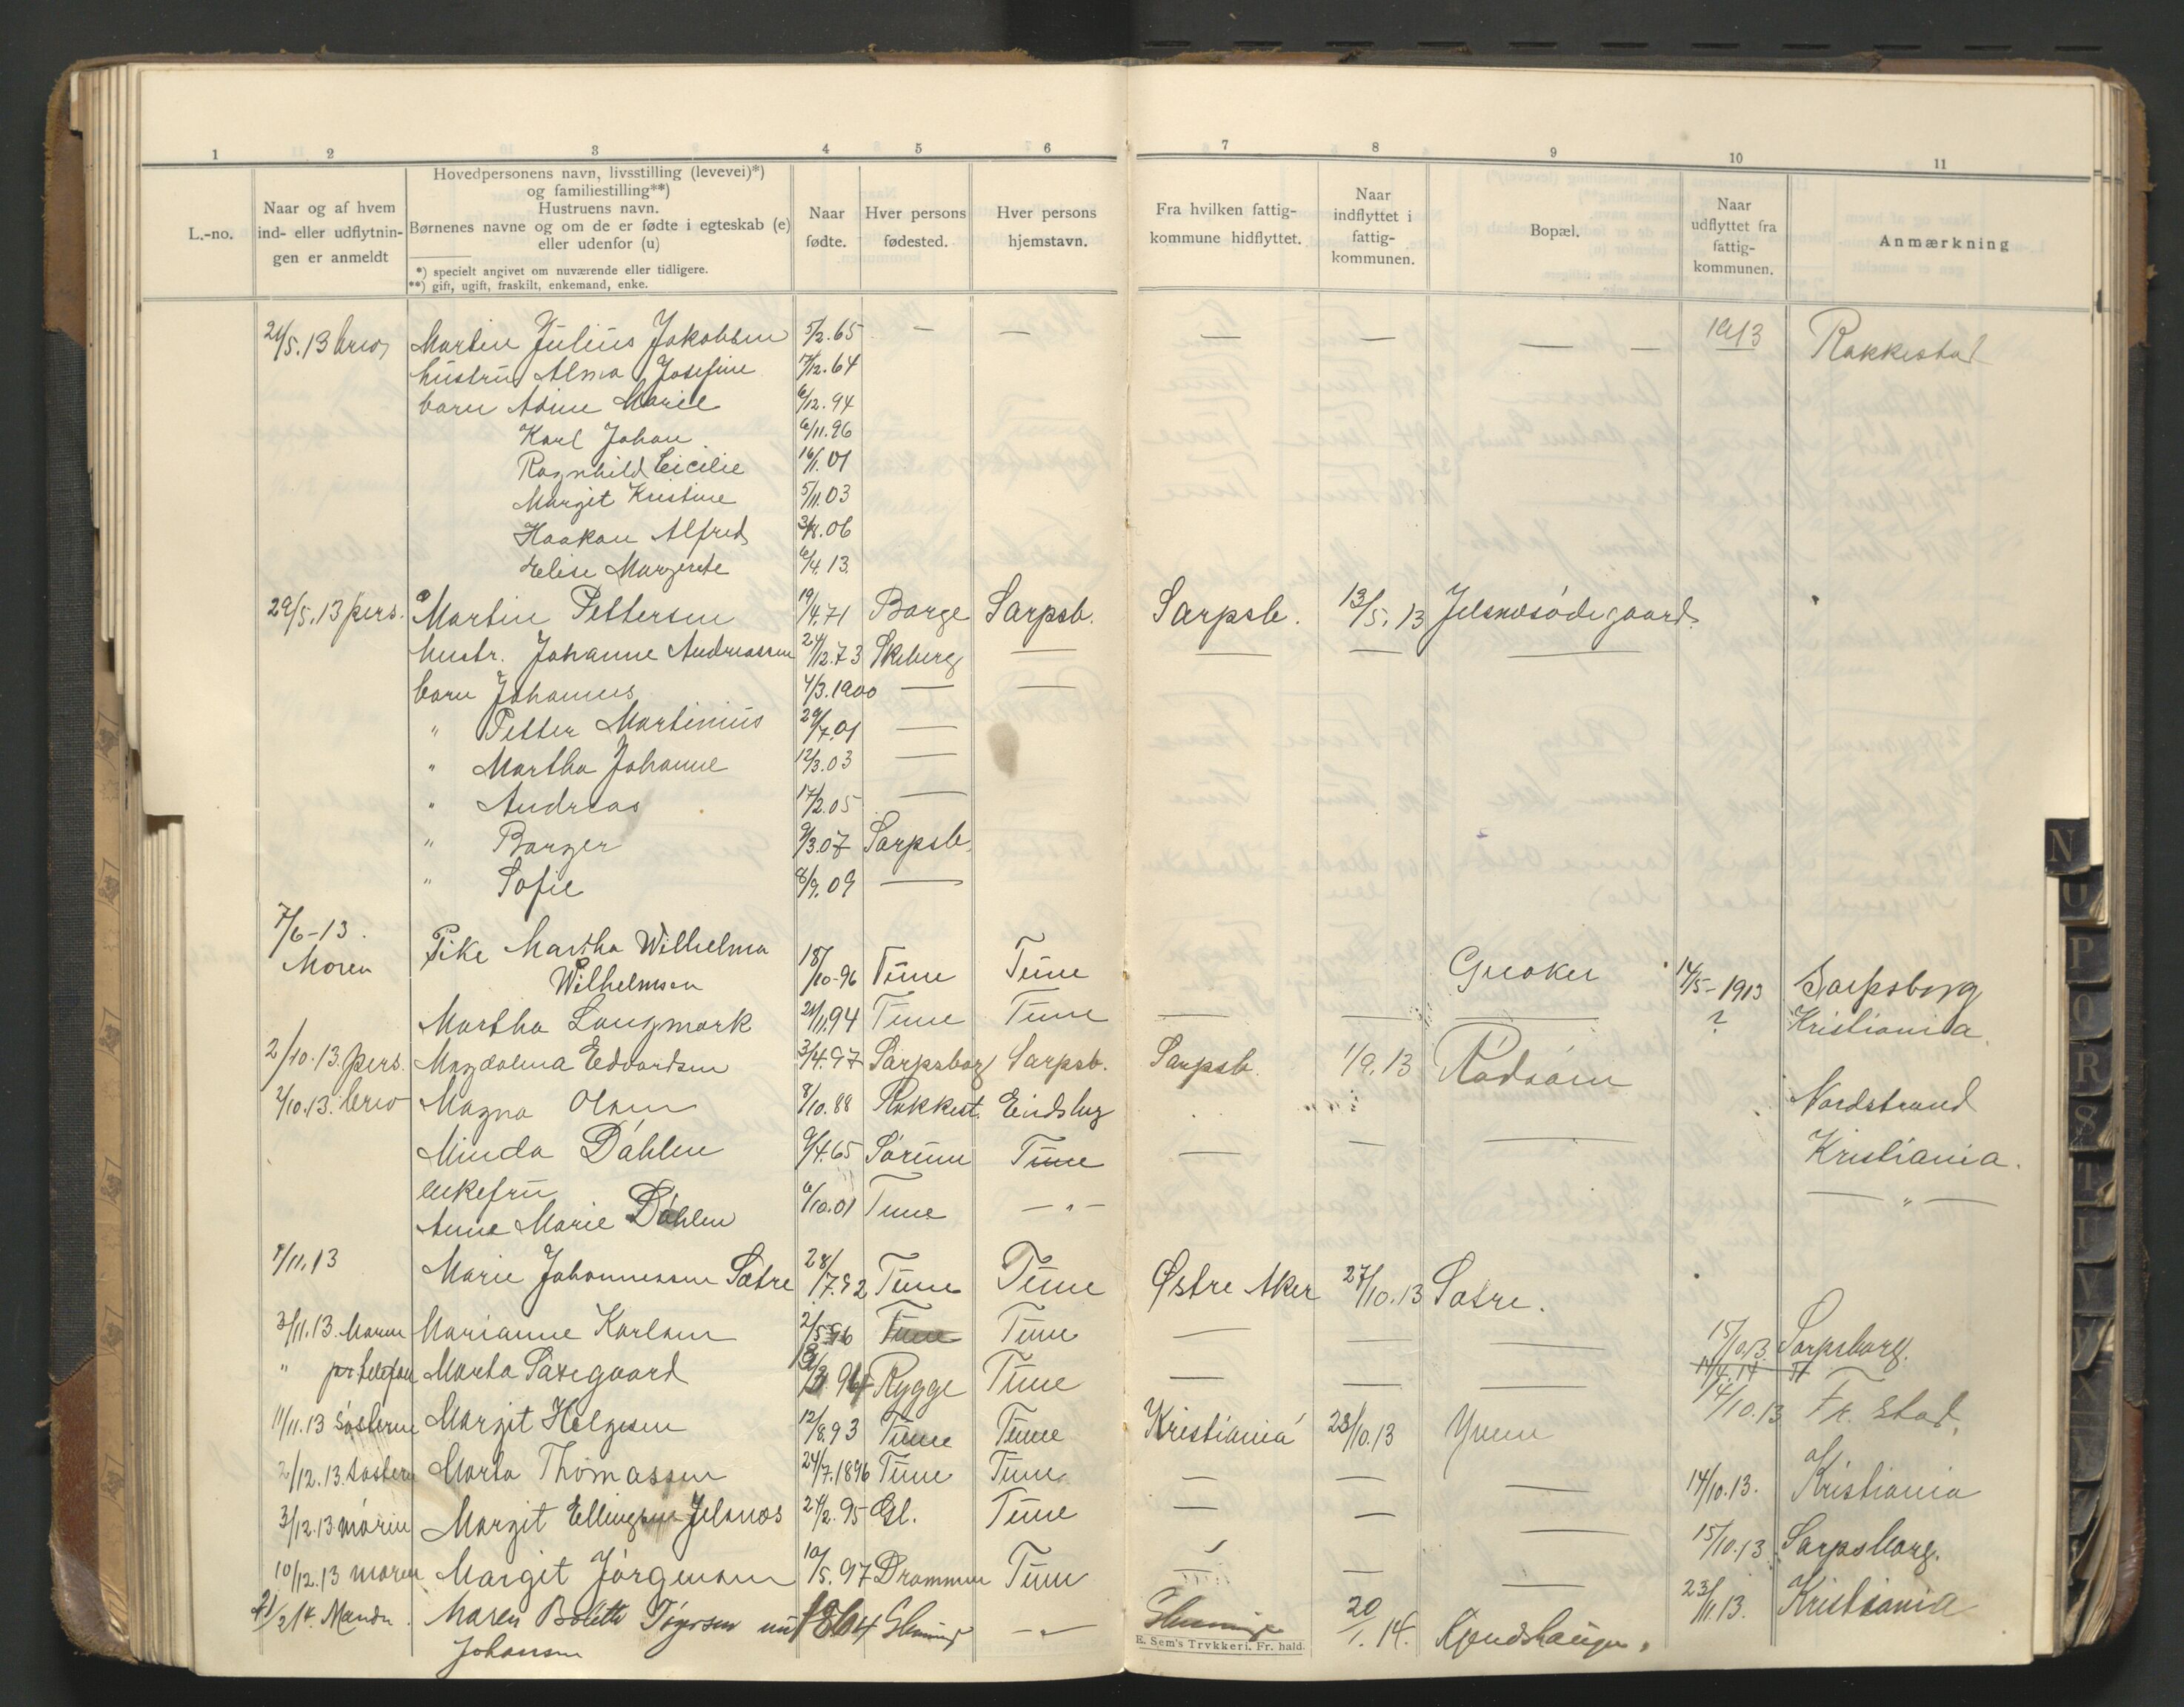 1 2 3 4 5 6 7 8 9 10 11
L.-no.
Naar og af hvem
ind- eller udflytnin-
gen er anmeldt
Hovedpersonens navn, livsstilling (levevei)*)
og familiestilling**)
Hustruens navn.
Børnenes navne og om de er fødte i egteskab (e)
eller udenfor (u)
*) specielt angivet om nuværende eller tidligere.
**) gift, ugift, fraskilt, enkemand, enke.
Naar
fødte.
Hver persons
fødested.
Hver persons
hjemstavn.
Fra hvilken fattig-
kommune hidflyttet.
Naar
indflyttet i
fattig-
kommunen.
Bopæl.
Naar
udflyttet fra
fattig-
kommunen.
Anmærkning
24/5.13 brev Martin Julius Jakobsen 5/2.65 — — — — — — 1913 Rakkestad
hustru Alma Josefine 17/12.64
barn Adine Marie 6/12.94
Karl Johan 6/11.96
Ragnhild Cicilie 16/1.01
Margit Kristine 5/11.03
Haakon Alfred 3/8.06
Elise Margrete 6/4.13.
29/5.13 pers. Martin Pettersen 19/4.71 Borge Sarpsb. Sarpsb. 13/5.13 Jelsnesödegaard
hustr. Johanne Andreassen 24/12.73 Skeberg — — — —
barn Johannes 4/3.1900 — —
" Petter Martinius 29/7.01 —
" Martha Johanne 12/3.03 —
" Andreas 17/2.05 —
" Borger 9/3.07 Sarpsb.
" Sofie 8/9.09 —
7/6-13.
Moren Pike Martha Wilhelma
Wilhelmsen 18/10-96 Tune Tune Greaker 14/5-1913 Sarpsborg
Martha Langmark 24/11.94 Tune Tune — — — ? Kristiania
2/10.13. pers. Magdalena Edvardsen 3/4.97 Sarpsborg Sarpsb. Sarpsb. 1/9.13 Rådsåen
2/10.13. brev Magna Olsen 8/10.88 Rakkest. Eidsberg Nordstrand
Minda Dåhlen 9/4.65 Sörum Tune — — — Kristiania.
enkefru
Anna Marie Dåhlen 6/10.01 Tune — " — — " —
1/11.13 Marie Johannessen Sætre 28/7.92 Tune Tune Østre Aker 27/10.13 Sætre.
3/11.13. Moren Marianne Karlsen 2/5.96 Tune Tune — — — 15/10.13. Sarpsborg.
" pr telefon Marta Saxegaard 94 Rygge Tune — — — 14/10.13 Fr. stad.
11/11.13 Søsteren Margit Helgesen 12/8.93 Tune Tune Kristiania 28/10.13 Yven
2/12.13. søsteren Marta Thomassen 24/7.1896 Tune Tune — — — 14/10.13. Kristiania
3/12.13 moren Margit Ellingsen Jelsnes 24/2.95 Gl. Tune — — — 15/10.13 Sarpsborg.
10/12.13 moren Margit Jörgensen 10/5.97 Drammen Tune — — — 23/11.13. Kristiania
21/2 14. Manden. Maren Bolette 1864 Glemmige — " — Glemminge 20/1.14.
Johansen
E. Sem's Trykkeri. Fr. hald.
N O P Q R S T U V W X Y